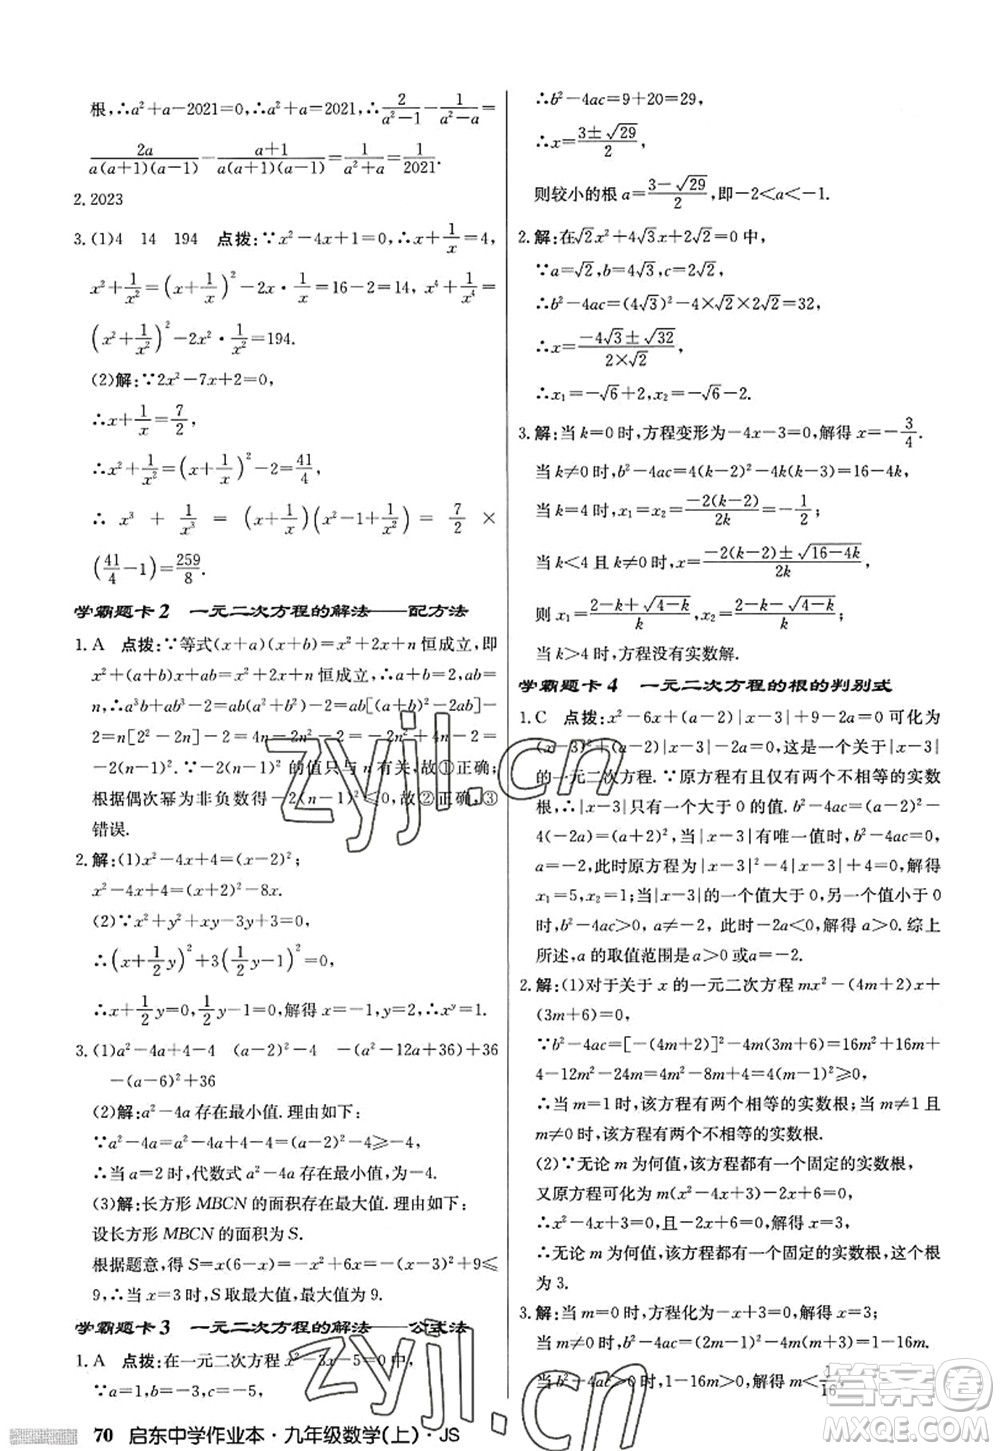 根,∴a²+a-2021=0,∴a²+a=2021,∴2/(a²-1)-1/(a²-a)=
2a/(a(a+1)(a-1))-(a+1)/(a(a+1)(a-1))=1/(a²+a)=1/2021.
2. 2023
3. (1)4 14 194 点拨:∵x²-4x+1=0,∴x+1/x=4,
x²+1/x²=(x+1/x)²-2x·1/x=16-2=14, x⁴+1/x⁴=
(x²+1/x²)²-2x²·1/x²=194.
(2)解:∵2x²-7x+2=0,
∴x+1/x=7/2,
∴x²+1/x²=(x+1/x)²-2=41/4,
∴x³+1/x³=(x+1/x)(x²-1+1/x²)=7/2×
(41/4-1)=259/8.
学霸题卡2 一元二次方程的解法——配方法
1. A 点拨:∵等式(x+a)(x+b)=x²+2x+n恒成立,即
x²+(a+b)x+ab=x²+2x+n恒成立,∴a+b=2,ab=
n,∴a³b+ab³-2=ab(a²+b²)-2=ab[(a+b)²-2ab]-
2=n[2²-2n]-2=4n-2n²-2=-2(n²-2n+1)=-2(n-
1)².∵-2(n-1)²的值只与n有关,故①正确;
根据偶次幂为非负数得-2(n-1)²≤0,故②正确,③
错误.
2. 解:(1)x²-4x+4=(x-2)²;
x²-4x+4=(x+2)²-8x.
(2)∵x²+y²+xy-3y+3=0,
∴(x+1/2y)²+3(1/2y-1)²=0,
∴x+1/2y=0,1/2y-1=0,∴x=-1,y=2,∴xʸ=1.
3. (1)a²-4a+4-4 (a-2)²-4 -(a²-12a+36)+36
-(a-6)²+36
(2)解:a²-4a存在最小值.理由如下:
∵a²-4a=a²-4a+4-4=(a-2)²-4≥-4,
∴当a=2时,代数式a²-4a存在最小值,为-4;
(3)解:长方形MBCN的面积存在最大值.理由如下:
设长方形MBCN的面积为S.
根据题意,得S=x(6-x)=-x²+6x=-(x-3)²+9≤
9,∴当x=3时,S取最大值,最大值为9.
学霸题卡3 一元二次方程的解法——公式法
1. A 点拨:在一元二次方程x²-3x-5=0中,
∵a=1,b=-3,c=-5,
∴b²-4ac=9+20=29,
∴x=(3±√29)/2,
则较小的根a=(3-√29)/2,即-2<a<-1.
2. 解:在√2x²+4√3x+2√2=0中,
∵a=√2,b=4√3,c=2√2,
∴b²-4ac=(4√3)²-4×√2×2√2=32,
∴x=(-4√3±√32)/(2×√2),
∴x₁=-√6+2,x₂=-√6-2.
3. 解:当k=0时,方程变形为-4x-3=0,解得x=-3/4.
当k≠0时,b²-4ac=4(k-2)²-4k(k-3)=16-4k,
当k=4时,x₁=x₂=-2(k-2)/2k=-1/2;
当k<4且k≠0时,x=(-2(k-2)±√(16-4k))/2k,
则x₁=(2-k+√(4-k))/k,x₂=(2-k-√(4-k))/k;
当k>4时,方程没有实数解.
学霸题卡4 一元二次方程的根的判别式
1. C 点拨:x²-6x+(a-2)|x-3|+9-2a=0可化为
(x-3)²+(a-2)|x-3|-2a=0,这是一个关于|x-3|
的一元二次方程.∵原方程有且仅有两个不相等的实数
根,∴|x-3|只有一个大于0的值.b²-4ac=(a-2)²-
4(-2a)=(a+2)²,当|x-3|有唯一值时,b²-4ac=0,
a=-2,此时原方程为|x-3|²-4|x-3|+4=0,解得
x₁=5,x₂=1;当|x-3|的一个值大于0,另一个值小于0
时,b²-4ac>0,a≠-2,此时-2a<0,解得a>0.综上
所述,a的取值范围是a>0或a=-2.
2. 解:(1)对于关于x的一元二次方程mx²-(4m+2)x+
(3m+6)=0,
∵b²-4ac=[-(4m+2)]²-4m(3m+6)=16m²+16m+
4-12m²-24m=4m²-8m+4=4(m-1)²≥0,
∴当m=1时,该方程有两个相等的实数根;当m≠1且
m≠0时,该方程有两个不相等的实数根.
(2)∵无论m为何值,该方程都有一个固定的实数根,
又原方程可化为m(x²-4x+3)-2x+6=0,
∴x²-4x+3=0,-2x+6=0,解得x=3,
∴无论m为何值,该方程都有一个固定的实数根,这个根
为3.
3. 解:当m=0时,方程为-x+3=0,解得x=3;
当m≠0时,b²-4ac=(2m-1)²-4m(m+3)=1-16m.
∴当1-16m>0时,解得m<1/16,
70 启东中学作业本·九年级数学(上)·JS
zyjl.cn
zyjl.cn
答案卷
MXQE.COM